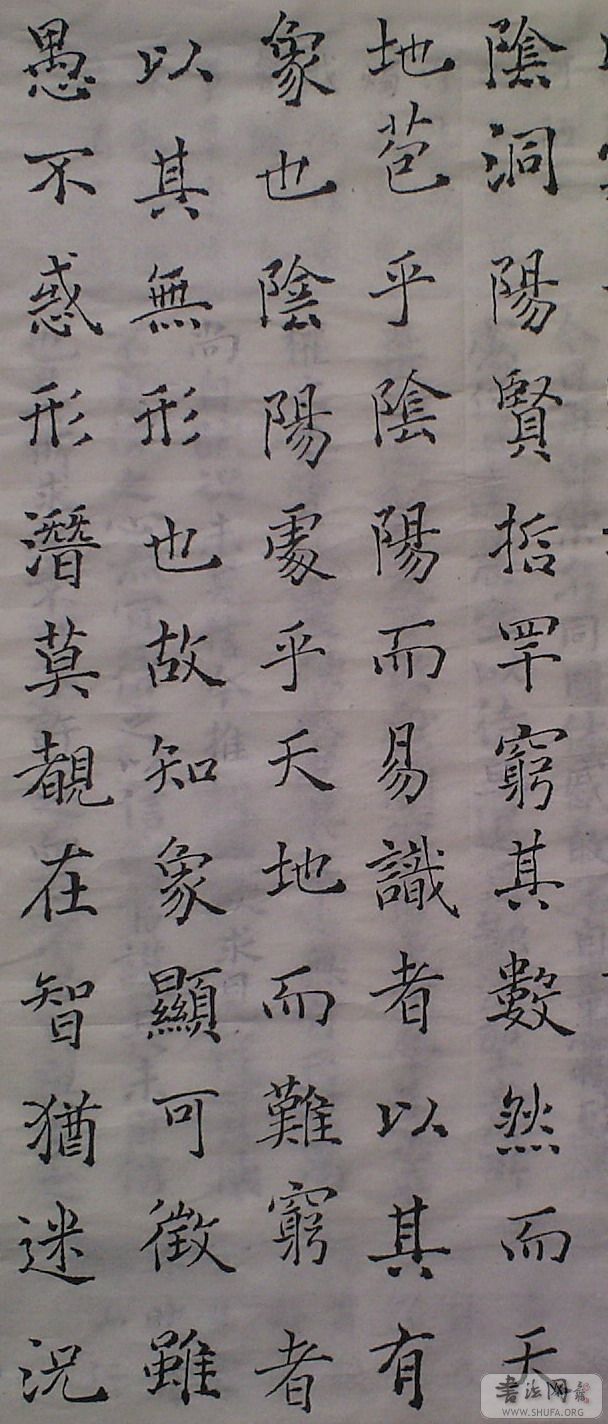 陰洞陽賢哲罕窮其數然而天
地苞乎陰陽而易識者以其有
象也陰陽處乎天地而難窮者
以其無形也故知象顯可徵雖
愚不惑形潛莫覩在智猶迷況
書法网
WWW.SHUFA.ORG